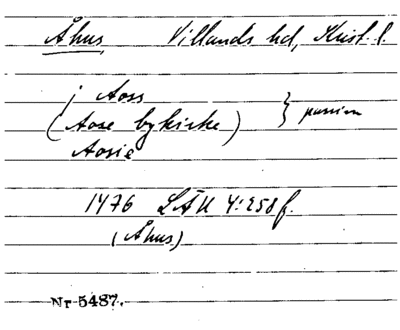 Åhus, Villands hd, Krist. l.
j Aoss
(Aose bykirke) } passim
Aosie
1476 LÄU 4:258 f.
(Åhus)
Nr 5487.